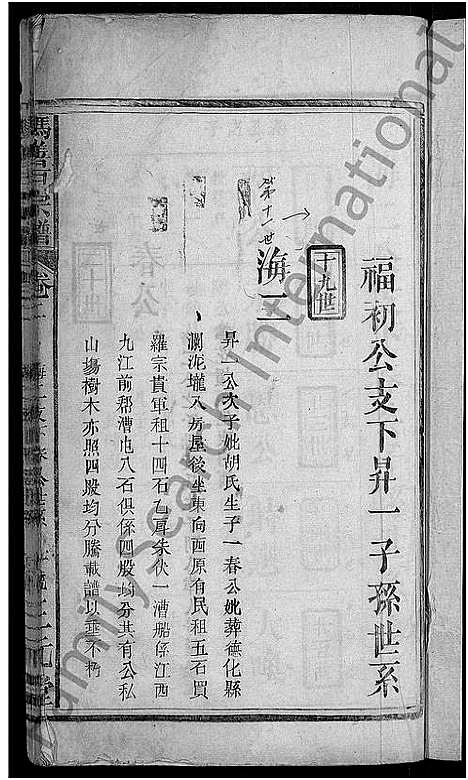 福初公支下昇一子孫世系
十九世
第十一世
海二
昇一公次子妣胡氏生子一春公妣葬德化縣
瀾泥壠入房屋後坐東向西原有民租五石買
羅宗貴軍租十四石乙耳朱伙一漕船係江西
九江前郡漕屯八石俱係四股均分其有公私
山塲樹木亦照四股均分謄載譜以垂不朽
FamilySearch International